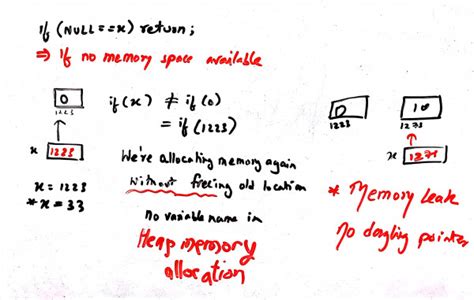 if (NULL==x) return;
⇒ If no memory space available
0
1223
if (x) ≠ if (0)
= if (1223)
x 1223
x = 1223
*x = 33
We're allocating memory again
without freeing old location
no variable name in
Heap memory
allocation
0
1223
10
1278
x 1278
* Memory Leak
No dangling pointer